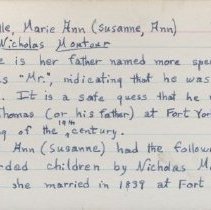 lle, Marie Ann (Susanne, Ann)
Nicholas Montour
e is her father named more spe
s "Mr.", nidicating that he was
. It is a safe guess that he
Thomas (or his father) at Fort Yor
ng of the 19th century.
Ann (Susanne) had the follow
rded children by Nicholas M
she married in 1839 at Fort